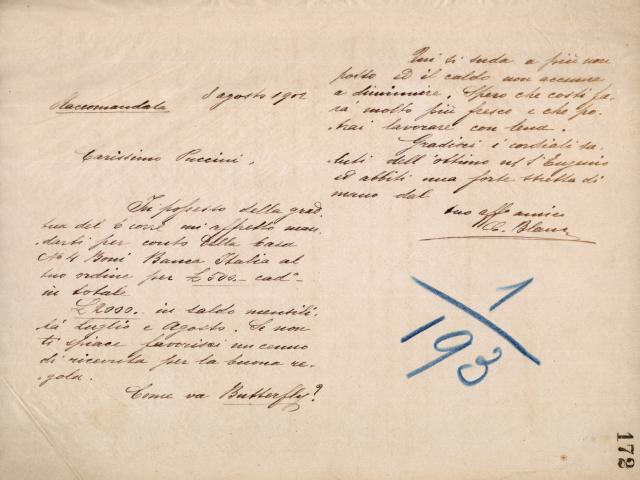 Raccomandata 8 agosto 1902
Carissimo Puccini,
In possesso della grad.
tua del 6 corr. mi affretto man-
darti per conto della Casa
N° 4 Boni Banca Italia al
tuo ordine per £ 500.- cad°
in totale
£ 2000.- in saldo mensili-
tà luglio e Agosto. Se non
ti spiace favorisci un cenno
di ricevuta per la buona re-
gola.
Come va Butterfly?
Qui si suda a più non
posso ed il caldo non accenna
a diminuire. Spero che costì fa-
rà molto più fresco e che po-
trai lavorare con lena.
Gradisci i cordiali sa-
luti dell'ottimo ns/ Sr Eugenio
ed abbiti una forte stretta di
mano dal
tuo aff amico
C. Blanc
1/193
172